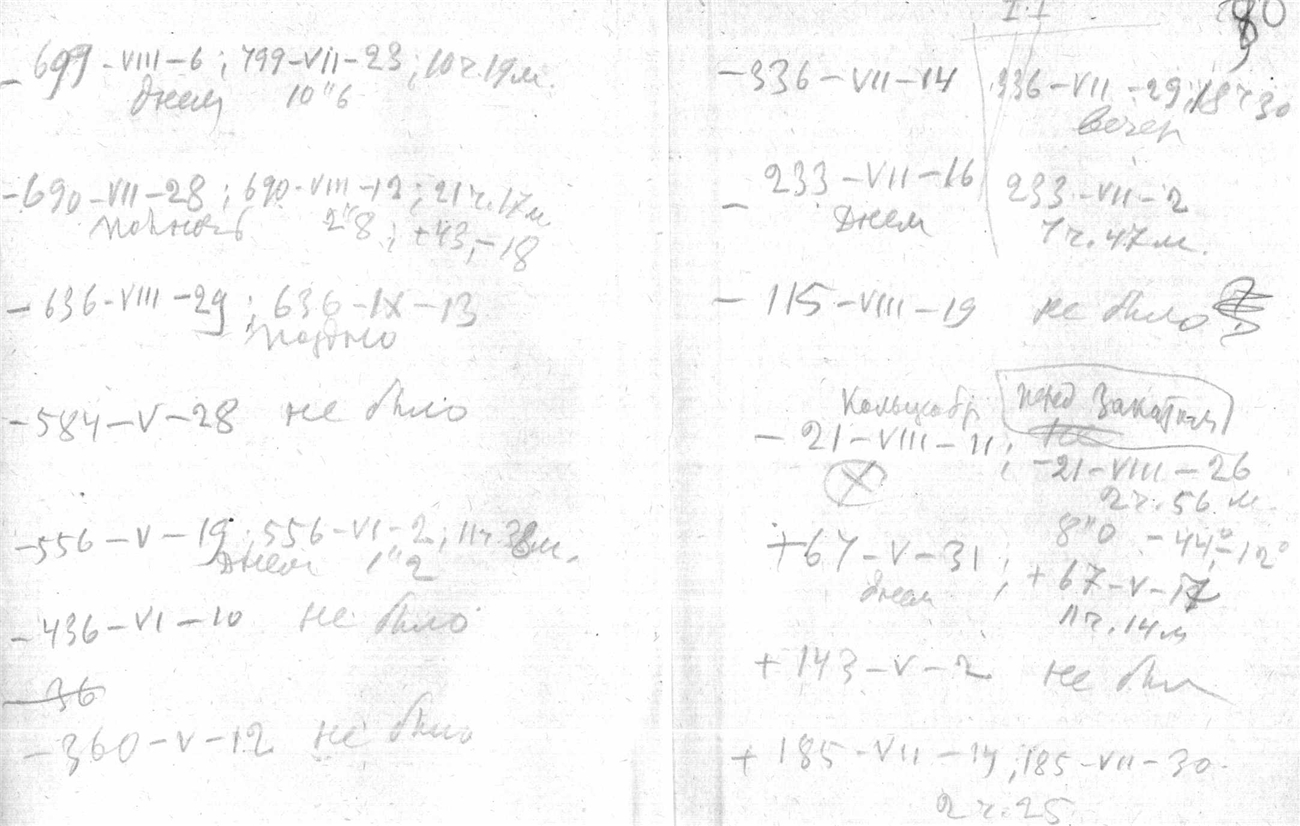 - 699-VIII-6; 799-VII-23; 10ч.19м.
днем 10"6
- 690-VII-28; 690-VIII-12; 21ч.17м
2"8; +43,-18
- 636-VIII-29; 636-IX-13
поздно
- 584-V-28 не было
- 556-V-19; 556-VI-2; 11ч.38м.
Днем 1"2
- 436-VI-10 не было
- 36
- 360-V-12 не было
I.I 80
- 336-VII-14 336-VII-29, 18ч30
вечер
- 233-VII-16 233-VII-2
Днем 1ч.47м.
- 115-VIII-19 не было
Кольцеобр. перед Закатом
- 21-VIII-11; -21-VIII-26
2ч.56м.
8"0 -44°,-12°
+67-V-31; +67-V-17
днем 11ч.14м
+143-V-2 не был
+185-VII-14; 185-VII-30
2ч.25